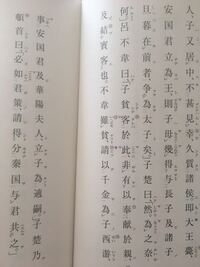 人、子又居中、不甚見幸、久質諸侯。即大王薨、
安国君立為王、則子毋幾得与長子及諸子
旦暮在前者、争為太子矣。」子楚曰、「然。為之奈
何。」呂不韋曰、「子貧客於此、非有以奉献於親
及結賓客也。不韋雖貧、請以千金為子西游、
事安国君及華陽夫人、立子為適嗣。」子楚乃
頓首曰、「必如君策、請得分秦国与君共之。」